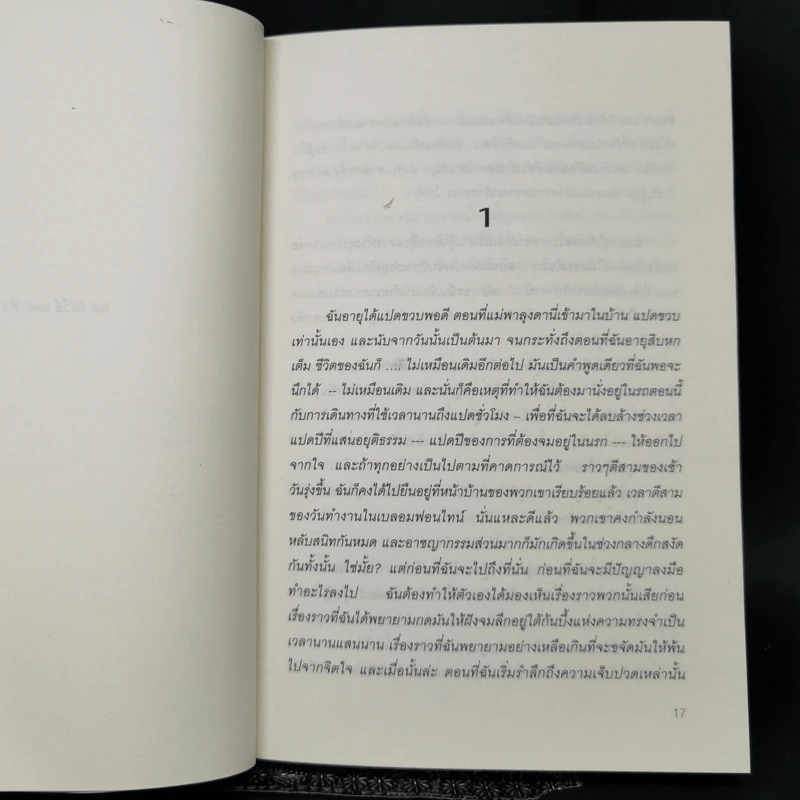 1
ฉันอายุได้แปดขวบพอดี ตอนที่แม่พาลุงดานี่เข้ามาในบ้าน แปดขวบ
เท่านั้นเอง และนับจากวันนั้นเป็นต้นมา จนกระทั่งถึงตอนที่ฉันอายุสิบหก
เต็ม ชีวิตของฉันก็ .... ไม่เหมือนเดิมอีกต่อไป มันเป็นคำพูดเดียวที่ฉันพอจะ
นึกได้ -- ไม่เหมือนเดิม และนั่นก็คือเหตุที่ทำให้ฉันต้องมานั่งอยู่ในรถตอนนี้
กับการเดินทางที่ใช้เวลานานถึงแปดชั่วโมง – เพื่อที่ฉันจะได้ลบล้างช่วงเวลา
แปดปีที่แสนอยุติธรรม --- แปดปีของการที่ต้องจมอยู่ในนรก --- ให้ออกไป
จากใจ และถ้าทุกอย่างเป็นไปตามที่คาดการณ์ไว้ ราวๆตีสามของเช้า
วันรุ่งขึ้น ฉันก็คงได้ไปยืนอยู่ที่หน้าบ้านของพวกเขาเรียบร้อยแล้ว เวลาตีสาม
ของวันทำงานในเบลอมฟอนไทน์ นั่นแหละดีแล้ว พวกเขาคงกำลังนอน
หลับสนิทกันหมด และอาชญากรรมส่วนมากก็มักเกิดขึ้นในช่วงกลางดึกสงัด
กันทั้งนั้น ใช่มั้ย? แต่ก่อนที่ฉันจะไปถึงที่นั่น ก่อนที่ฉันจะมีปัญญาลงมือ
ทำอะไรลงไป ฉันต้องทำให้ตัวเองได้มองเห็นเรื่องราวพวกนั้นเสียก่อน
เรื่องราวที่ฉันได้พยายามกดมันให้ฝังจมลึกอยู่ใต้ก้นบึ้งแห่งความทรงจำเป็น
เวลานานแสนนาน เรื่องราวที่ฉันพยายามอย่างเหลือเกินที่จะขจัดมันให้พ้น
ไปจากจิตใจ และเมื่อนั้นล่ะ ตอนที่ฉันเริ่มรำลึกถึงความเจ็บปวดเหล่านั้น
17